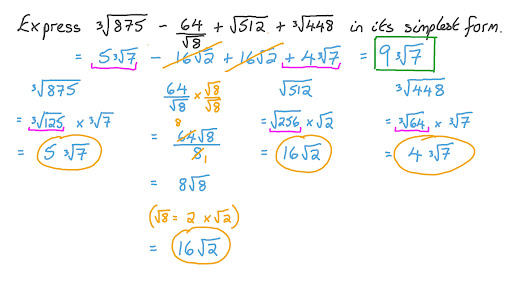 Express ³√875 − 64/√8 + √512 + ³√448 in its simplest form.
= 5³√7 − 16√2 + 16√2 + 4³√7 = 9³√7
³√875
= ³√125 × ³√7
= 5³√7
64/√8 × √8/√8
= 8 64√8/8 1
= 8√8
(√8 = 2 × √2)
= 16√2
√512
= √256 × √2
= 16√2
³√448
= ³√64 × ³√7
= 4³√7